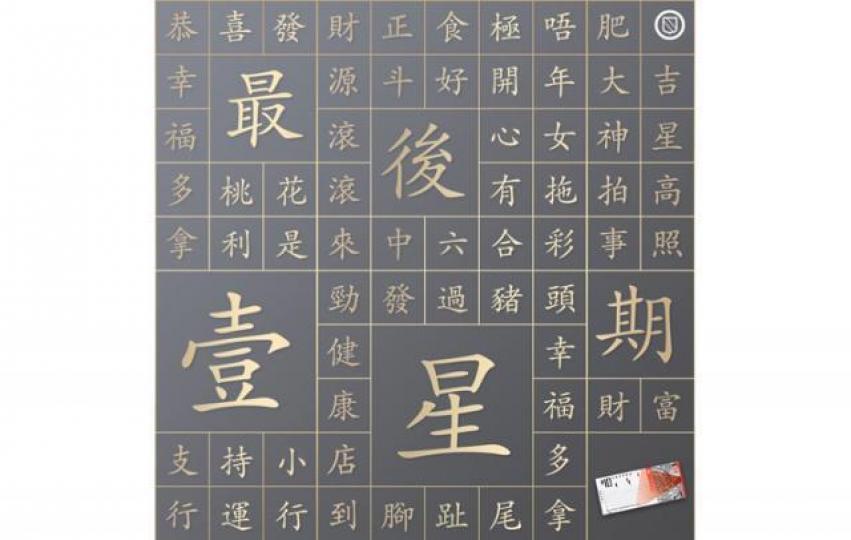 恭喜發財正食極唔肥
幸最源斗好開年大吉
福滾後心女神星
多桃花滾有拖拍高
拿利是來中六合彩事照
壹勁發過豬頭期
健星幸
康福財富
支持小店多
行運行到腳趾尾拿